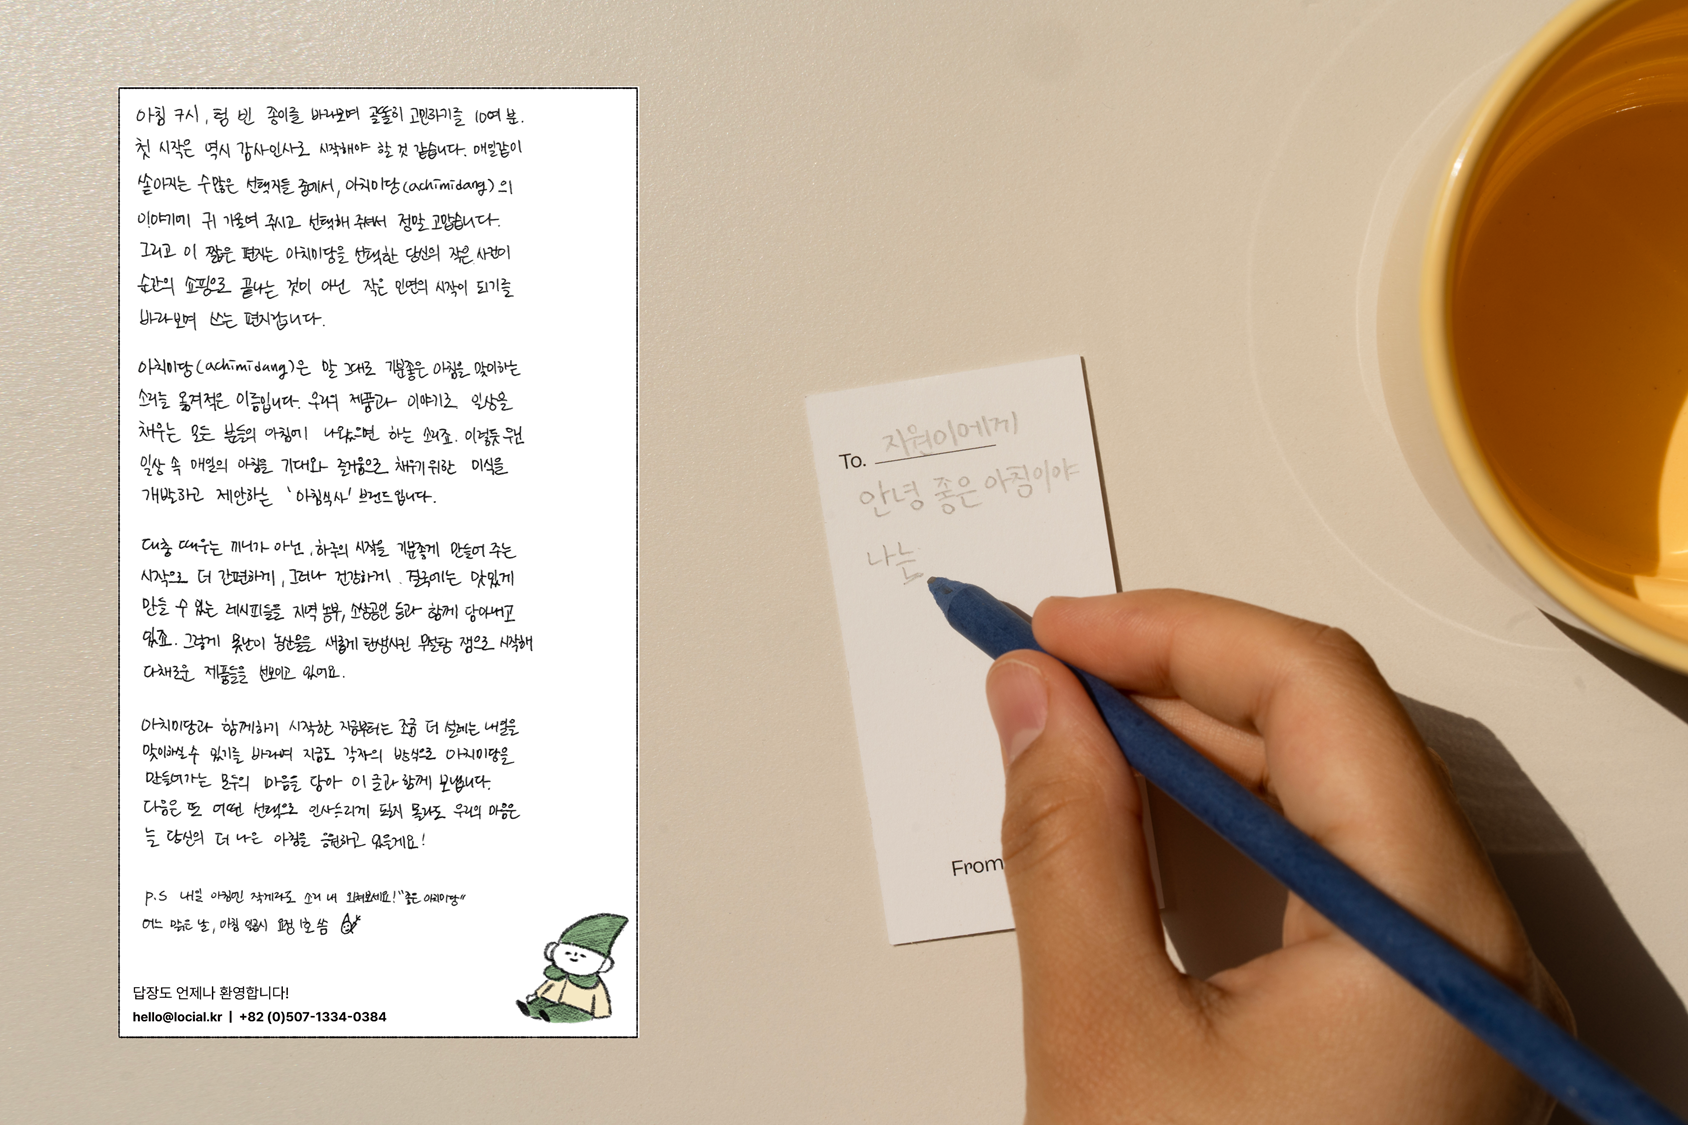 아침 7시, 텅 빈 종이를 바라보며 골똘히 고민하기를 10여 분.
첫 시작은 역시 감사인사로 시작해야 할 것 같습니다. 매일같이
쏟아지는 수많은 선택지들 중에서, 아치미당(achimidang)의
이야기에 귀 기울여 주시고 선택해 주셔서 정말 고맙습니다.
그리고 이 짧은 편지는 아치미당을 선택한 당신의 작은 사건이
순간의 쇼핑으로 끝나는 것이 아닌 작은 인연의 시작이 되기를
바라보며 쓰는 편지랍니다.
아치미당(achimidang)은 말 그대로 기분좋은 아침을 맞이하는
소리를 옮겨적은 이름입니다. 우리의 제품과 이야기로 일상을
채우는 모든 분들의 아침에 나왔으면 하는 소리죠. 이렇듯 우린
일상 속 매일의 아침을 기대와 즐거움으로 채우기 위한 미식을
개발하고 제안하는 '아침식사' 브랜드입니다.
대충 때우는 끼니가 아닌, 하루의 시작을 기분좋게 만들어 주는
시작으로 더 간편하게, 그러나 건강하게. 결국에는 맛있게
만들 수 있는 레시피들을 지역 농부, 소상공인 들과 함께 담아내고
있죠. 그렇게 못난이 농산물을 새롭게 탄생시킨 무설탕 잼으로 시작해
다채로운 제품들을 선보이고 있어요.
아치미당과 함께하기 시작한 지금부터는 조금 더 설레는 내일을
맞이하실 수 있기를 바라며 지금도 각자의 방식으로 아치미당을
만들어가는 모두의 마음을 담아 이 글과 함께 보냅니다.
다음은 또 어떤 선택으로 인사드리게 될지 몰라도 우리의 마음은
늘 당신의 더 나은 아침을 응원하고 있을게요!
P.S 내일 아침엔 작게라도 소리 내 외쳐보세요! "좋은 아치미당"
어느 맑은 날, 아침 일곱시 요정 1호 씀
답장도 언제나 환영합니다!
hello@locial.kr | +82 (0)507-1334-0384
To. 지원이에게
안녕 좋은 아침이야
나는
From